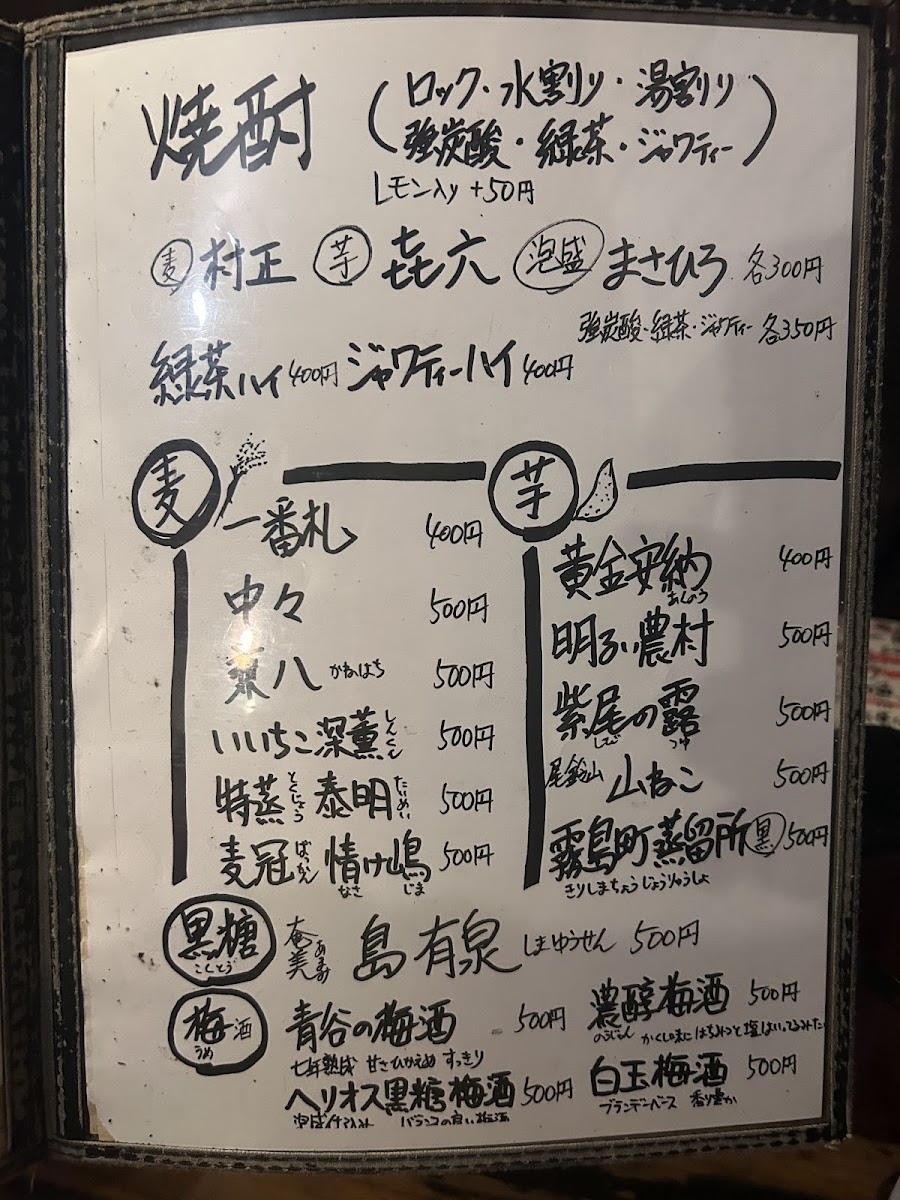 焼酎
(ロック・水割り・湯割り
強炭酸・緑茶・ジャワティー)
レモン入り +50円
麦 村正 芋 㐂六 泡盛 まさひろ 各300円
強炭酸・緑茶・ジャワティー 各350円
緑茶ハイ 400円 ジャワティーハイ 400円
麦
一番札 400円
中々 500円
兼八 かねはち 500円
いいちこ深薫 しんくん 500円
特蒸 とくじょう 泰明 たいめい 500円
麦冠 ばっかん 情け嶋 500円
なさ じま
芋
黄金安納 400円
あんのう
明るい農村 500円
紫尾の露 500円
しび つゆ
尾鈴山 山ねこ 500円
霧島町蒸留所 黒 500円
きりしまちょうじょうりゅうしょ
黒糖 奄美 あまみ 島有泉 しまゆうせん 500円
こくとう
梅酒
うめ
青谷の梅酒 500円
七年熟成 甘さひかえめ すっきり
ヘリオス黒糖梅酒 500円
泡盛仕込み バランスの良い梅酒
濃醇梅酒 500円
のうじゅん かくし味にはちみつと塩
白玉梅酒 500円
ブランデーベース 香り豊か